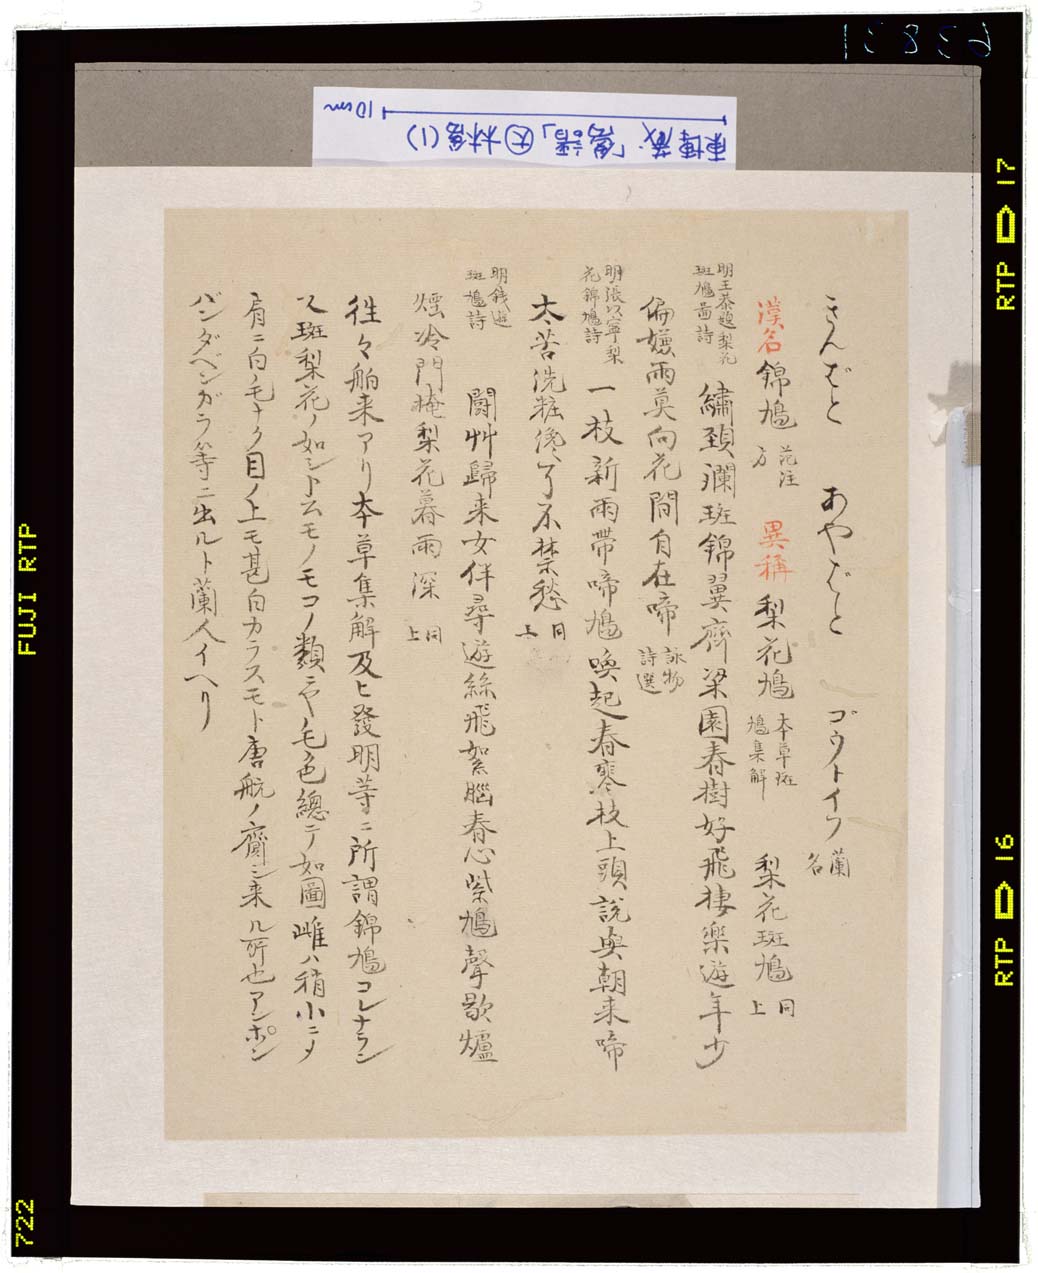 63831
東博蔵「鳥譜」㊅林鳥(1)
10cm
きんばと あやばと ゴウトイフ 蘭名
漢名 錦鳩 范注方 異稱 梨花鳩 本草斑鳩集解 梨花斑鳩 同上
明王恭題梨花斑鳩啚詩 繡頸斕斑錦翼齊梁園春樹好飛棲樂遊年少
偏嫌雨莫向花間自在啼 詠物詩選
明張以寧梨花錦鳩詩 一枝新雨帶啼鳩喚起春寒枝上頭說與朝来啼
太苦洗粧纔了不禁愁 同上
明錢遜斑鳩詩 鬪艸歸来女伴尋遊絲飛絮惱春心紫鳩聲歇爐
煙冷門掩梨花暮雨深 同上
徃々舶来アリ本草集解及ヒ發明等ニ所謂錦鳩コレナラン
又斑梨花ノ如シト云モノモコノ類ニヤ毛色總テ如圖雌ハ稍小ニメ
肩ニ白ノ毛ナク目ノ上モ甚白カラスモト唐舩ノ齎シ来ル所也アンポン
バンダベンガラ等ニ出ルト蘭人イヘリ
FUJI RTP
722
RTP 17
RTP 16